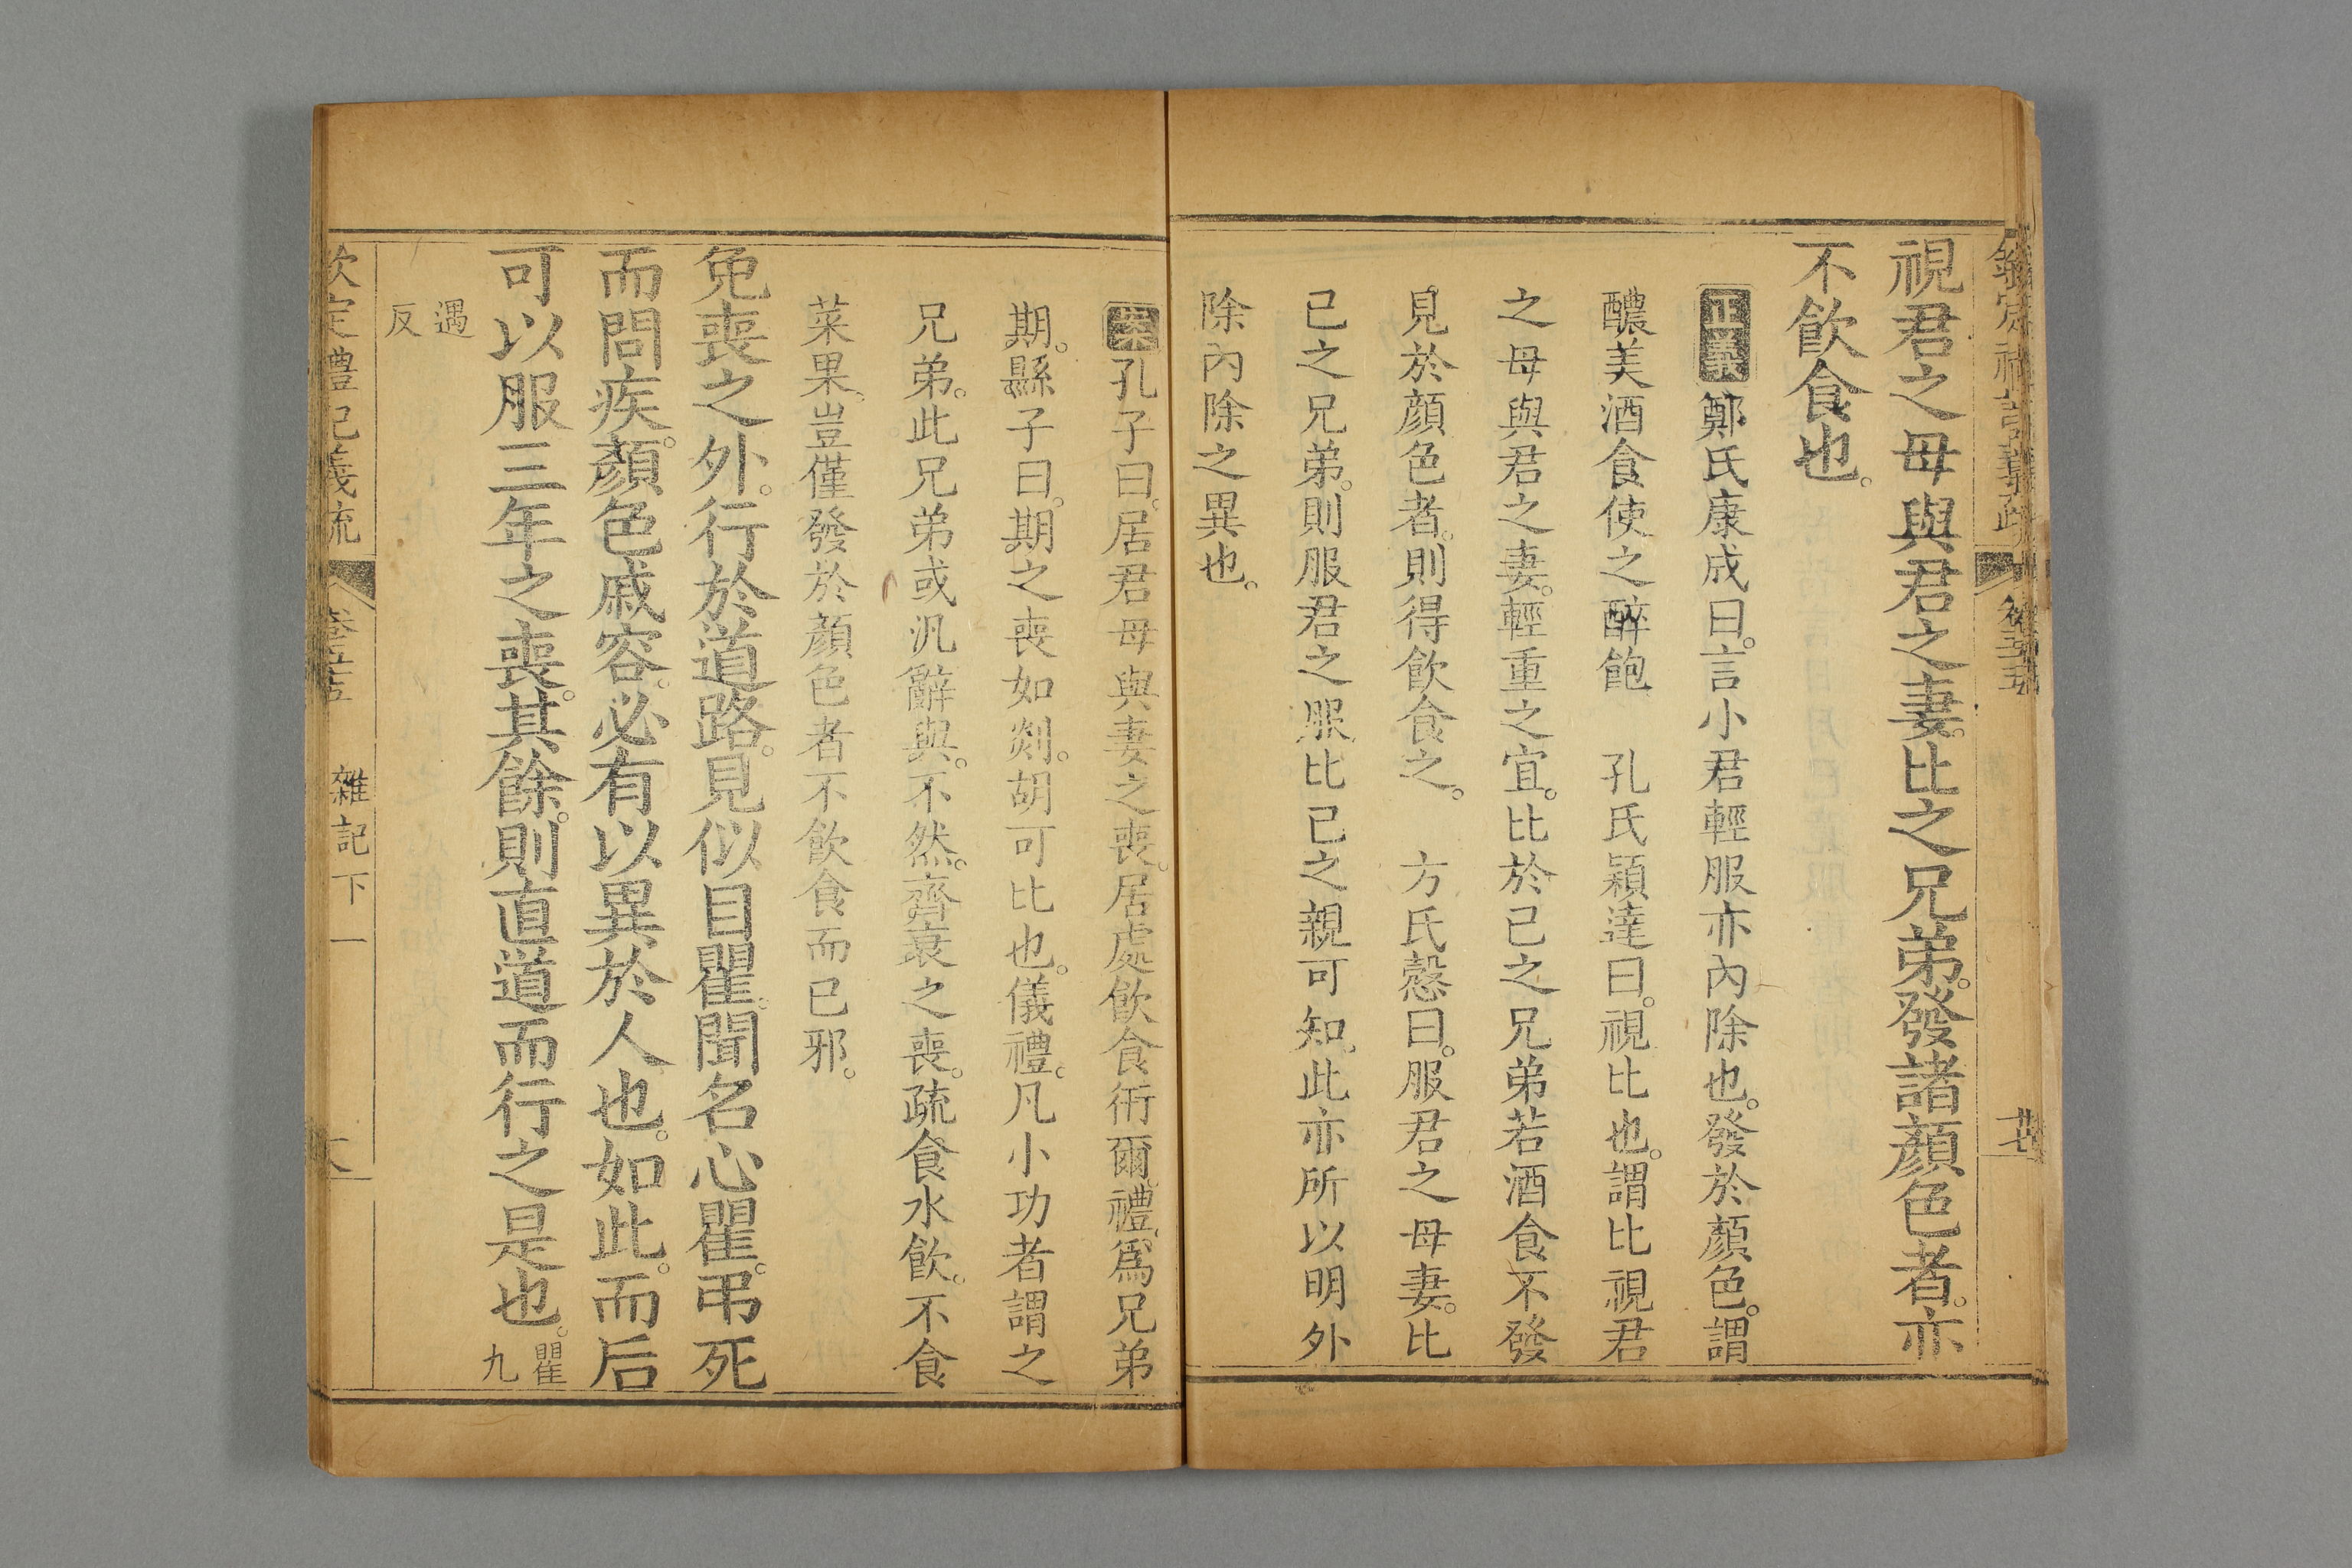 欽定禮記義疏 卷五十五 廿七
視君之母與君之妻。比之兄弟。發諸顏色者。亦
不飲食也。
正義 鄭氏康成曰。言小君輕服亦內除也。發於顏色。謂
醲美酒食使之醉飽 孔氏穎達曰。視比也。謂比視君
之母與君之妻。輕重之宜。比於已之兄弟若酒食不發
見於顏色者。則得飲食之。 方氏慤曰。服君之母妻。比
已之兄弟。則服君之服比已之親可知。此亦所以明外
除內除之異也。
案 孔子曰。居君母與妻之喪。居處飲食衎爾。禮。爲兄弟
期。縣子曰。期之喪如剡。胡可比也。儀禮。凡小功者謂之
兄弟。此兄弟或汎辭與。不然。齊衰之喪。疏食水飲。不食
菜果。豈僅發於顏色者不飲食而已邪。
免喪之外。行於道路。見似目瞿。聞名心瞿。弔死
而問疾。顏色戚容。必有以異於人也。如此。而后
可以服三年之喪。其餘。則直道而行之是也。瞿九
遇反
欽定禮記義疏 雜記下 一